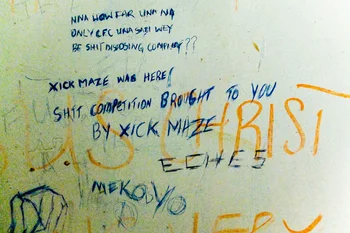 NNA HOW FAR UNA NA
ONLY CFC UNA SABI WEY
BE SHIT DISPOSING COMPANY??
XICK MAZE WAS HERE!
SHIT COMPETITION BROUGHT TO YOU
BY XICK MAZE
US CHRIST
ECHES
MEKOYO